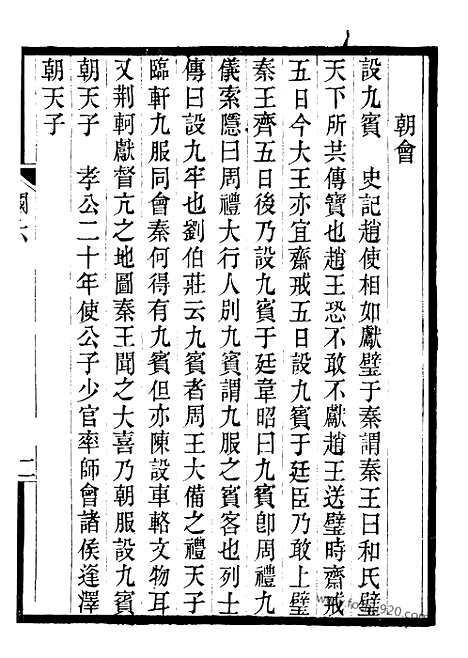 朝會
設九賓　史記趙使相如獻璧于秦謂秦王曰和氏璧
天下所共傳寶也趙王恐不敢不獻趙王送璧時齋戒
五日今大王亦宜齋戒五日設九賓于廷臣乃敢上璧
秦王齊五日後乃設九賓于廷韋昭曰九賓卽周禮九
儀索隱曰周禮大行人別九賓謂九服之賓客也列士
傳曰設九牢也劉伯莊云九賓者周王大備之禮天子
臨軒九服同會秦何得有九賓但亦陳設車輅文物耳
又荆軻獻督亢之地圖秦王聞之大喜乃朝服設九賓
朝天子　孝公二十年使公子少官率師會諸侯逢澤
朝天子
二